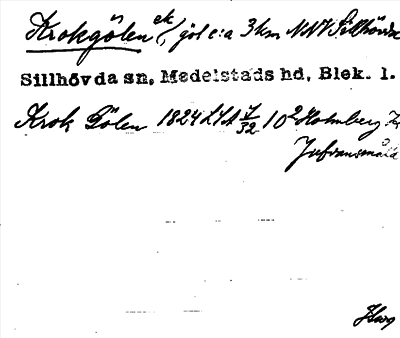 Krokgölen ek/ göl c:a 3 km NNV Sillhövda
Sillhövda sn, Medelstads hd, Blek. l.
Krok Gölen 1824 LSA 7/32 10² Holmberg
Jufvansmåla